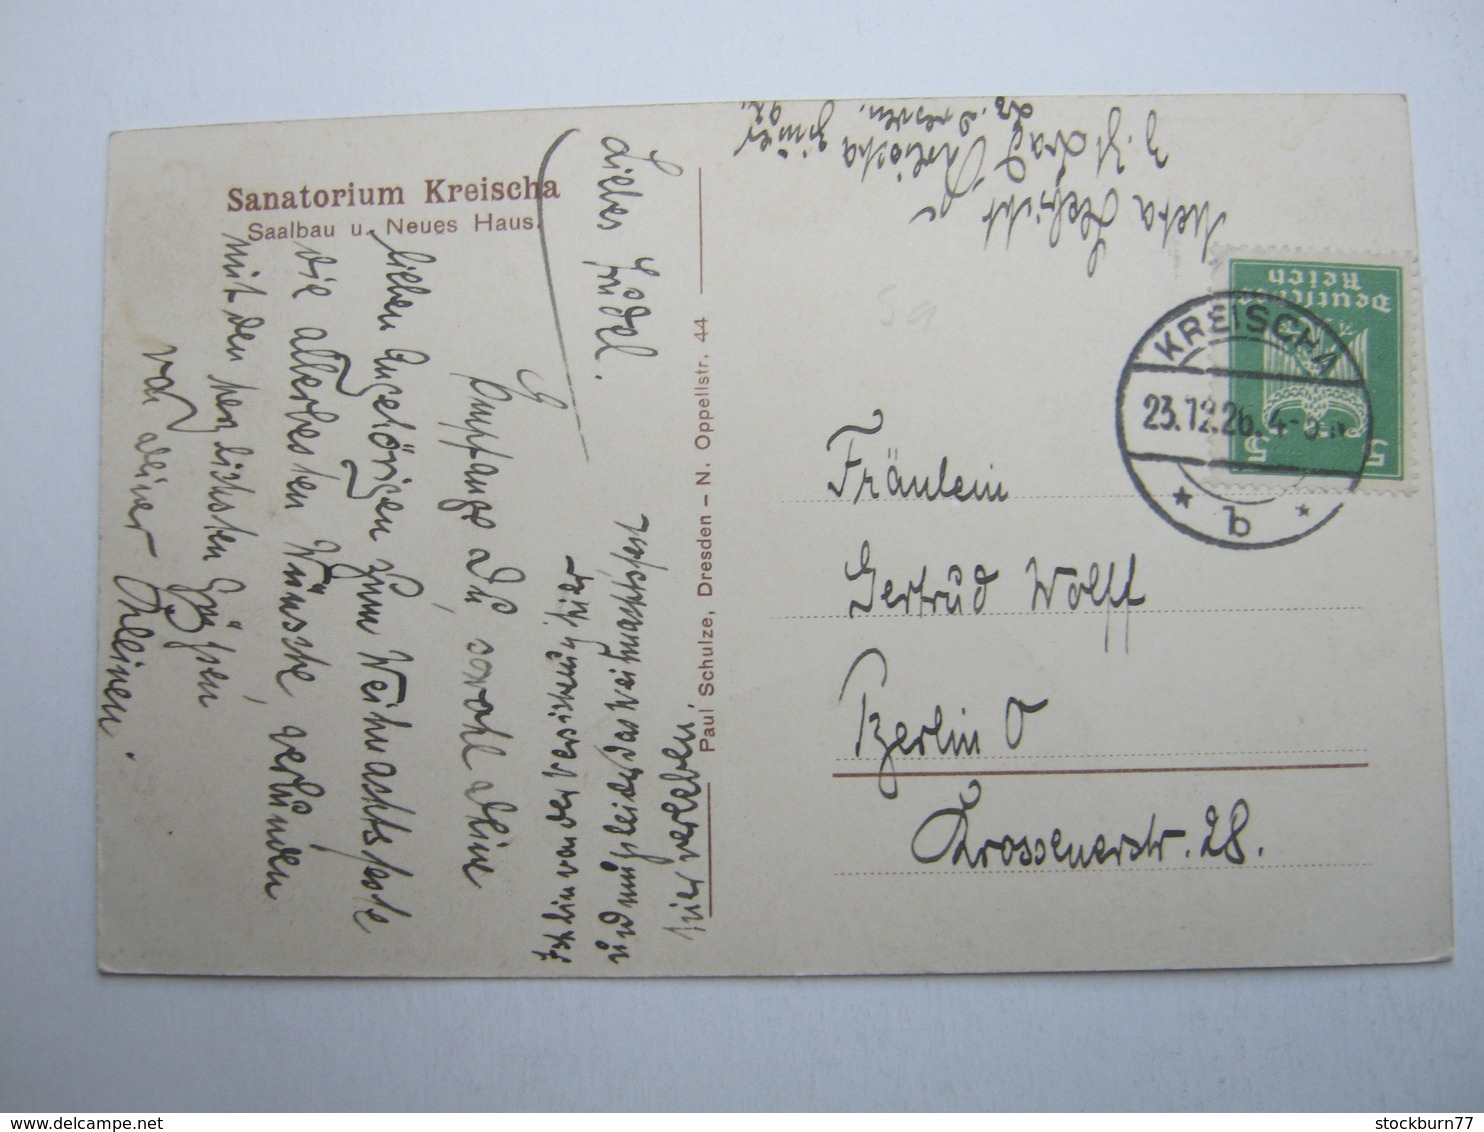 Sanatorium Kreischa
Saalbau u. Neues Haus.
Liebes Friedel.
Empfange Du sowohl Deine
lieben Angehörigen zum Weihnachtsfeste
die allerbesten Wünsche verbunden
mit den herzlichsten Grüßen
von deiner Kleinen.
Ich bin von der Versicherung hier
und muß leider das Weihnachtsfest
hier verleben.
Paul Schulze, Dresden – N. Oppellstr. 44
Meta
z. Zt. Bad Kreischa
Dresden.
Deutsches
Reich
5 5
KREISCHA
23.12.26. 4-5 N
* b *
Fräulein
Gertrud Wolff
Berlin O
Krossenerstr. 28.
5a
stockburn77